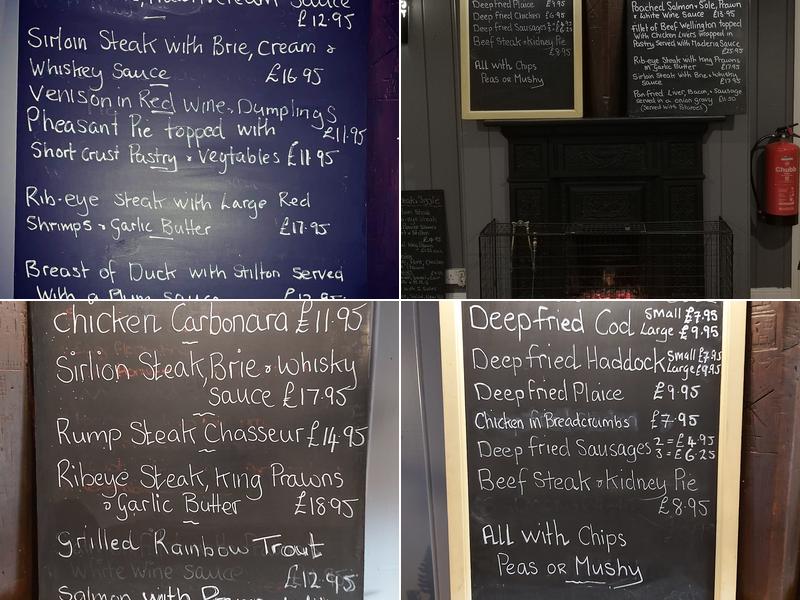 Sauce
£12.95
Sirloin Steak with Brie, Cream &
Whiskey Sauce £16.95
Venison in Red Wine, Dumplings
£11.95
Pheasant Pie topped with
Short Crust Pastry & Vegtables £11.95
Rib-eye Steak with Large Red
Shrimps & Garlic Butter £17.95
Breast of Duck with Stilton Served
With a Plum Sauce
Deepfried Plaice £9.95
Deep fried Chicken £6.95
Deep fried Sausages
Beef Steak & Kidney Pie
£8.95
All with Chips
Peas or Mushy
Poached Salmon & Sole, Prawn
& White Wine Sauce £13.95
Fillet of Beef Wellington topped
with Chicken Livers wrapped in
Pastry Served with Maderia Sauce
Rib-eye Steak with King Prawns
in Garlic Butter £17.95
Sirloin Steak with Brie & Whisky
Sauce
Pan fried Liver, Bacon, & Sausage
served in a onion gravy £11.50
Chubb
Chicken Carbonara £11.95
Sirlion Steak, Brie & Whisky
Sauce £17.95
Rump Steak Chasseur £14.95
Ribeye Steak, King Prawns
& Garlic Butter £18.95
Grilled Rainbow Trout
White Wine Sauce £12.95
Salmon with
Deepfried Cod Small £7.95
Large £9.95
Deepfried Haddock Small £7.95
Large £9.95
Deepfried Plaice £9.95
Chicken in Breadcrumbs £7.95
Deep fried Sausages 2 = £4.95
3 = £6.25
Beef Steak & Kidney Pie
£8.95
All with Chips
Peas or Mushy